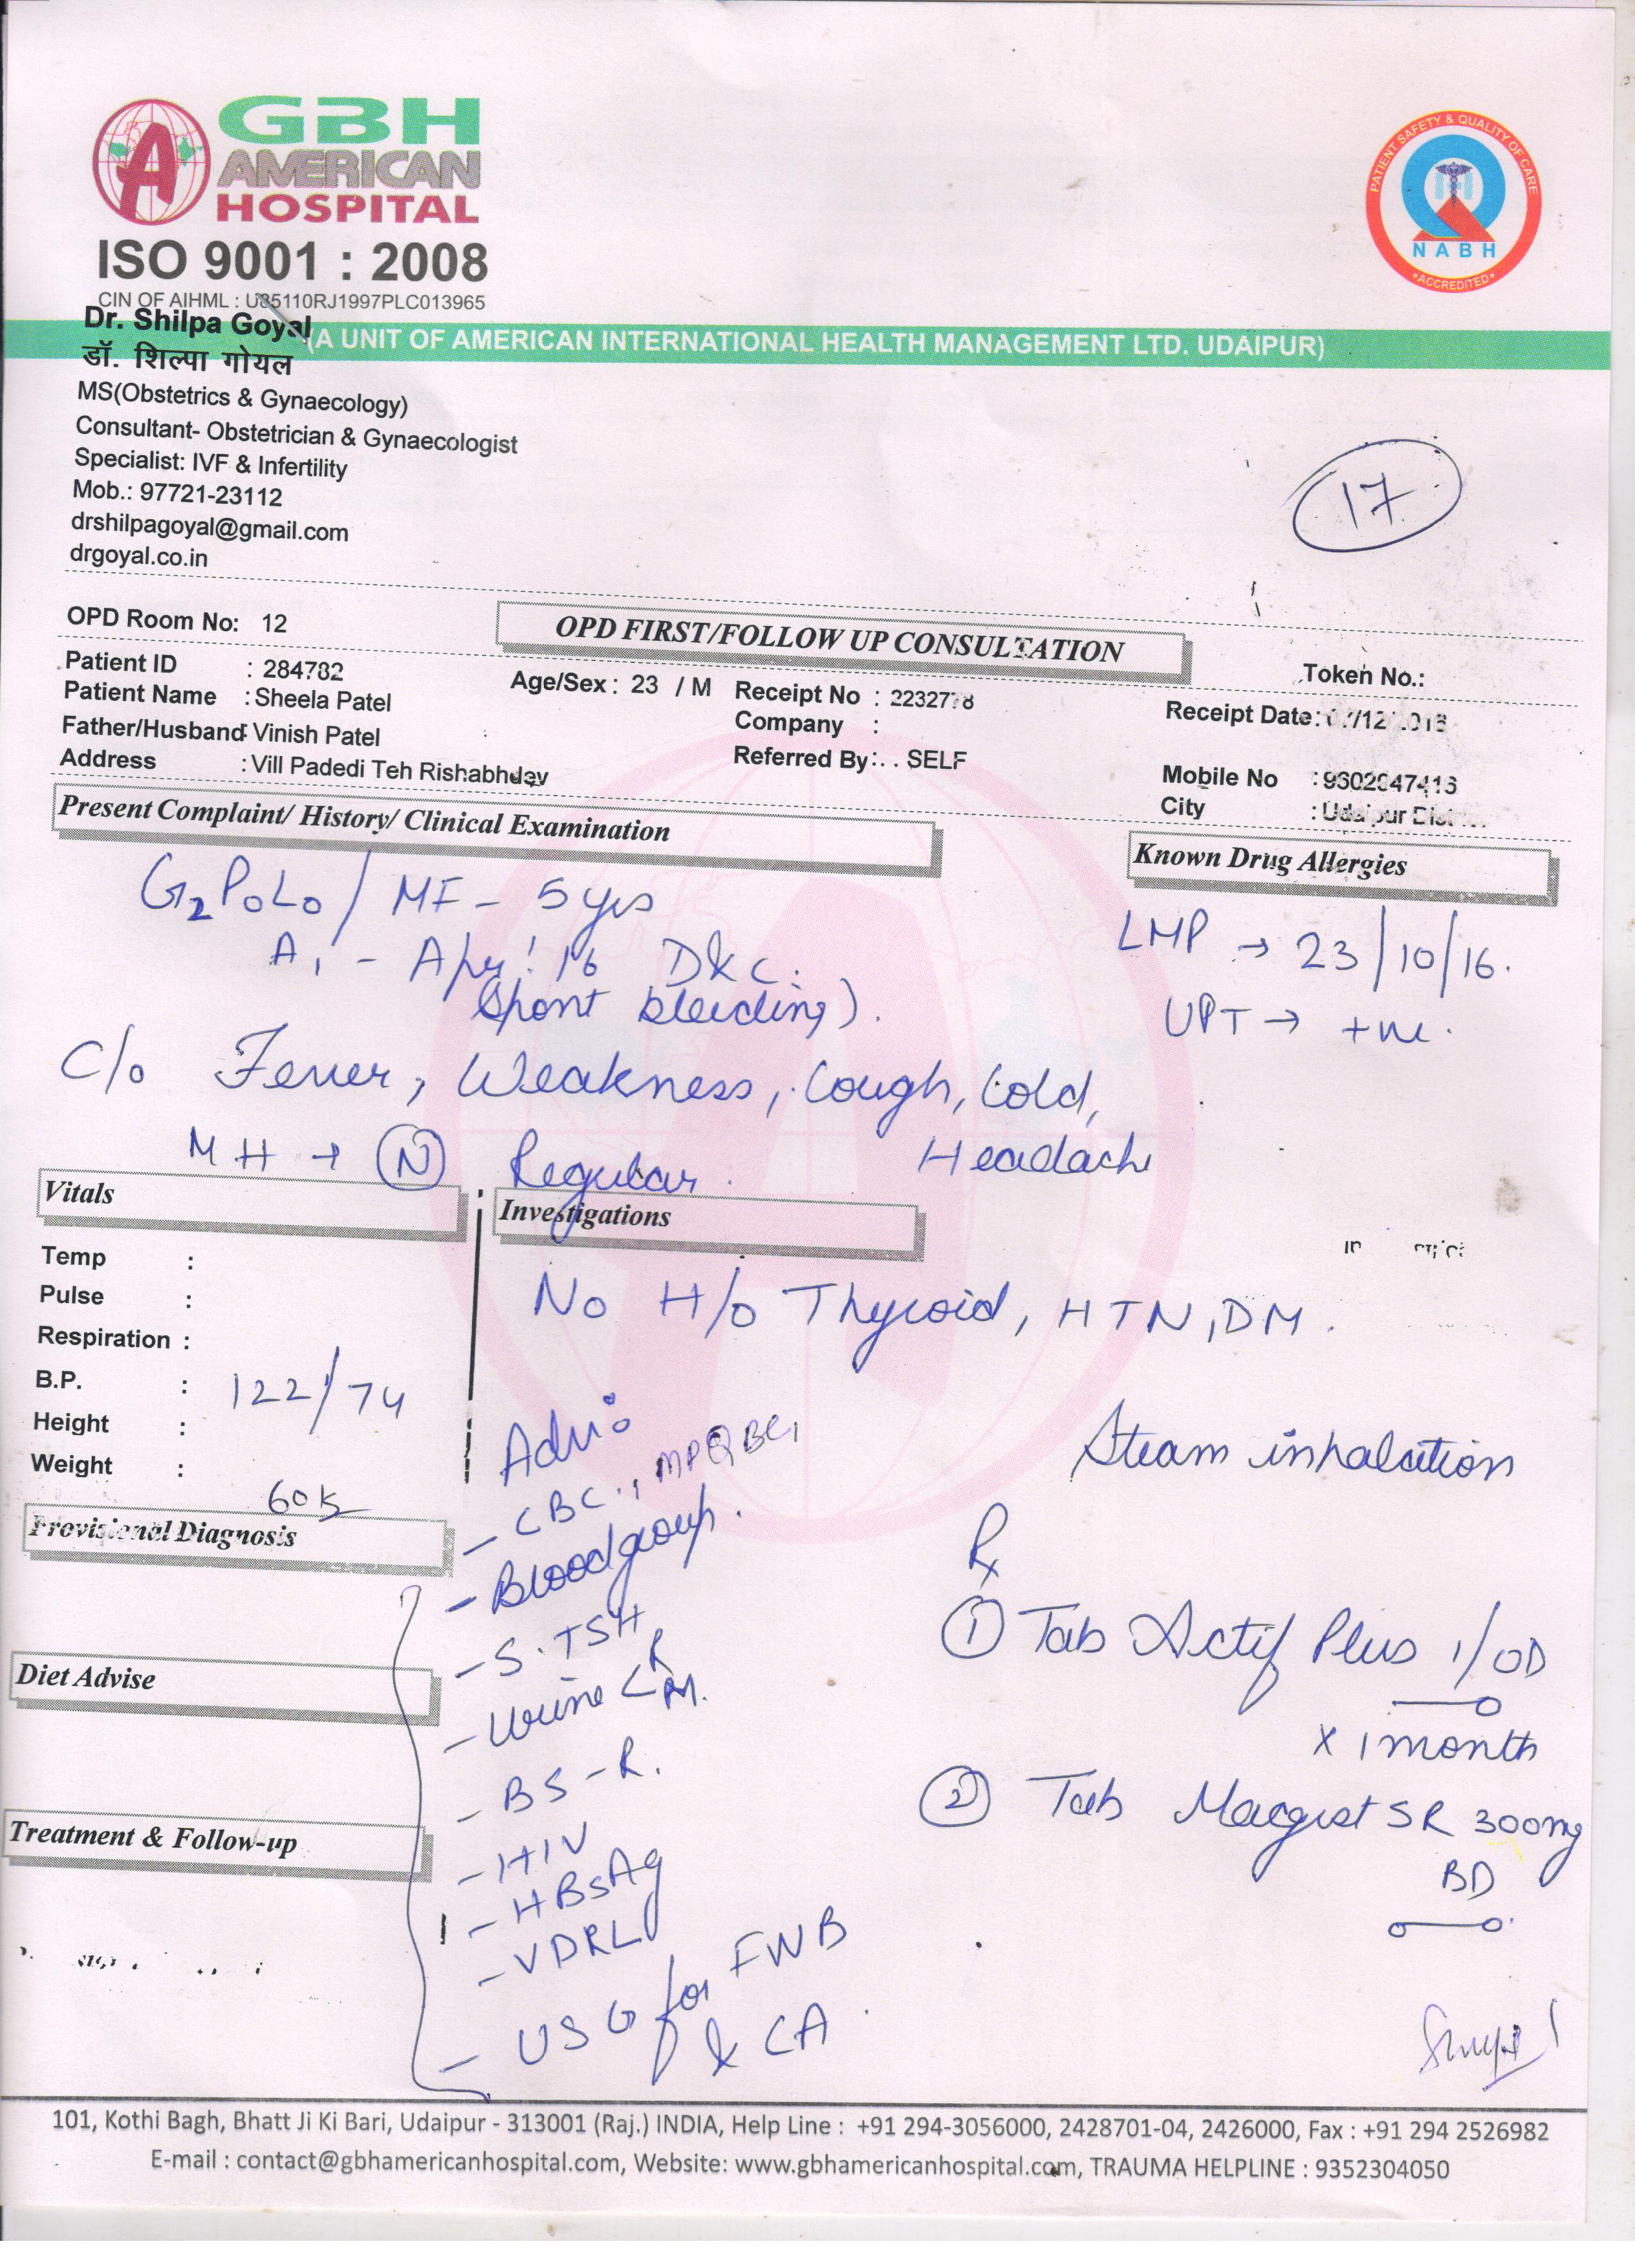 GBH
AMERICAN
HOSPITAL
ISO 9001 : 2008
CIN OF AIHML : U85110RJ1997PLC013965
PATIENT SAFETY & QUALITY OF CARE
NABH
ACCREDITED
(A UNIT OF AMERICAN INTERNATIONAL HEALTH MANAGEMENT LTD. UDAIPUR)
Dr. Shilpa Goyal
डॉ. शिल्पा गोयल
MS(Obstetrics & Gynaecology)
Consultant- Obstetrician & Gynaecologist
Specialist: IVF & Infertility
Mob.: 97721-23112
drshilpagoyal@gmail.com
drgoyal.co.in
17
OPD Room No: 12
OPD FIRST/FOLLOW UP CONSULTATION
Token No.:
Patient ID : 284782
Age/Sex : 23 / M
Receipt No : 2232778
Receipt Date:
Patient Name : Sheela Patel
Company :
Father/Husband: Vinish Patel
Referred By: . . SELF
Mobile No : 9602647416
Address : Vill Padedi Teh Rishabhdev
City : Udaipur
Present Complaint/ History/ Clinical Examination
Known Drug Allergies
G2P0L0 / MF - 5 yrs
LMP → 23/10/16.
A1 - Apr' 16 D&C.
(Spont bleeding).
UPT → +ve.
C/o Fever, Weakness, Cough, Cold,
Headache
MH → (N) Regular.
Vitals
Investigations
No H/o Thyroid, HTN, DM.
Temp :
Pulse :
Respiration :
B.P. : 122/74
Height :
Weight : 60
Adv:
Steam inhalation
- CBC, MPQBC,
- Blood group.
- S. TSH
- Urine < R
M.
- BS - R.
- HIV
- HBsAg
- VDRL
- USG for FWB
& CA.
Provisional Diagnosis
Diet Advise
Treatment & Follow-up
Rx
① Tab Actif Plus 1/OD
x 1 month
② Tab Macgest SR 300mg
BD
101, Kothi Bagh, Bhatt Ji Ki Bari, Udaipur - 313001 (Raj.) INDIA, Help Line : +91 294-3056000, 2428701-04, 2426000, Fax : +91 294 2526982
E-mail : contact@gbhamericanhospital.com, Website: www.gbhamericanhospital.com, TRAUMA HELPLINE : 9352304050